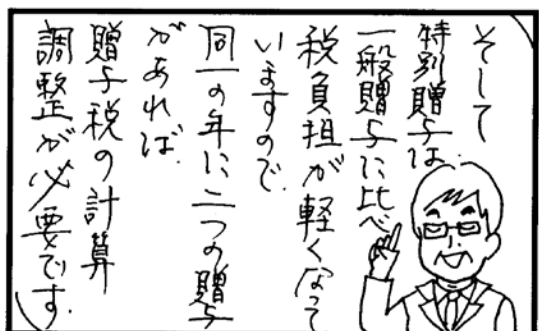 そして
特別贈与は、
一般贈与に比べ
税負担が軽くなって
いますので、
同一の年に二つの贈与
があれば、
贈与税の計算
調整が必要です。